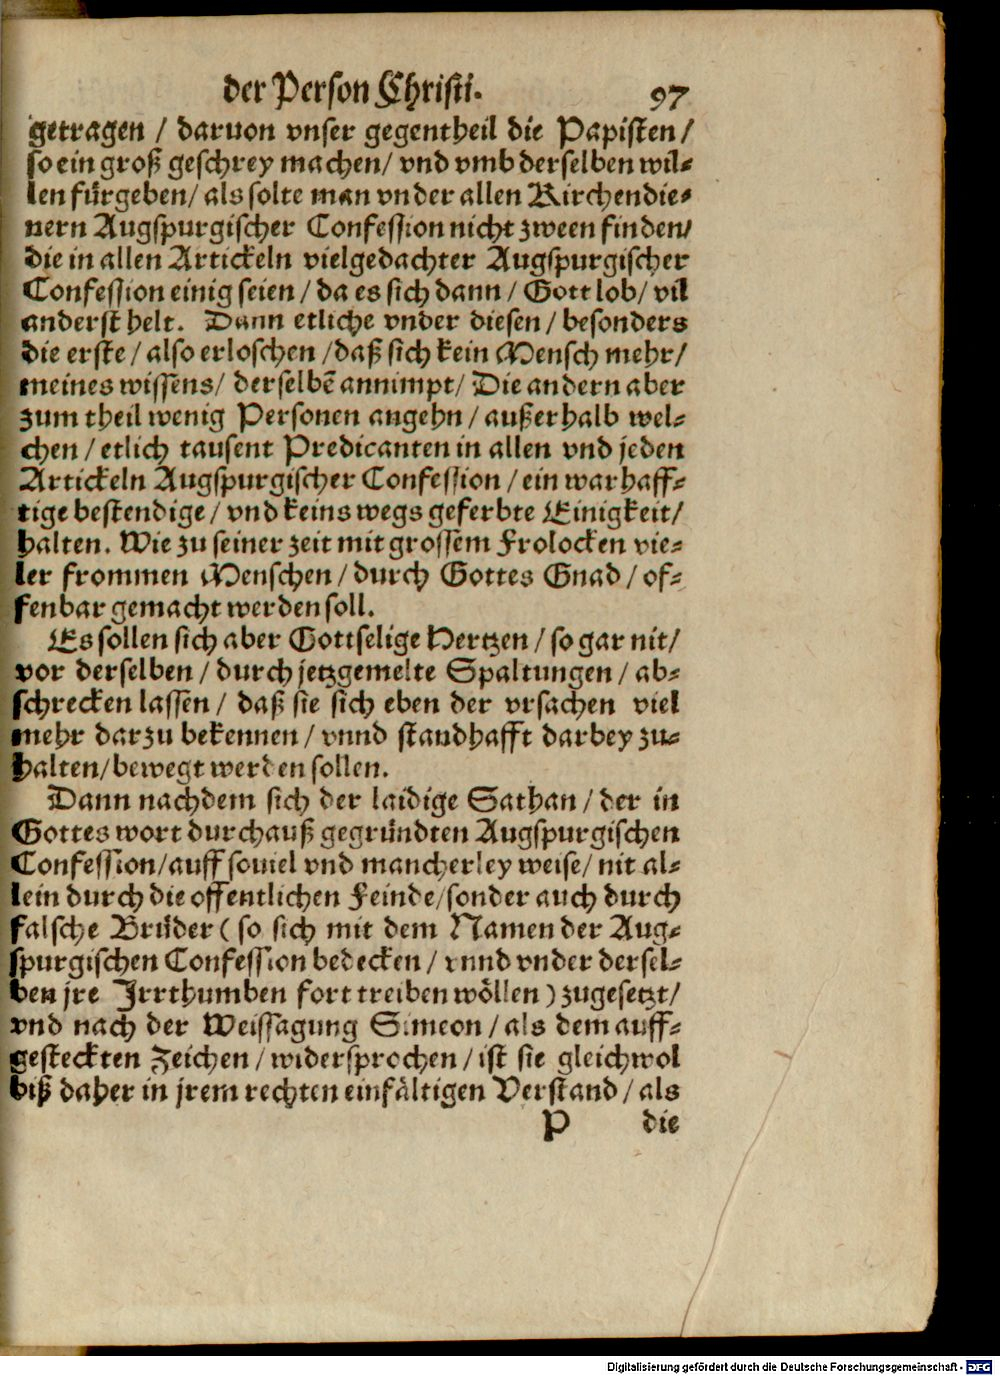 der Person Christi. 97
getragen / daruon vnser gegentheil die Papisten/
so ein groß geschrey machen/ vnd vmb derselben wil-
len fürgeben/ als solte man vnder allen Kirchendie-
nern Augspurgischer Confession nicht zween finden/
die in allen Artickeln vielgedachter Augspurgischer
Confession einig seien / da es sich dann / Gott lob/ vil
anderst helt. Dann etliche vnder diesen / besonders
die erste / also erloschen /daß sich kein Mensch mehr/
meines wissens/ derselbẽ annimpt/ Die andern aber
zum theil wenig Personen angehn / außerhalb wel-
chen / etlich tausent Predicanten in allen vnd jeden
Artickeln Augspurgischer Confession / ein warhaff-
tige bestendige / vnd keins wegs geferbte Einigkeit/
halten. Wie zu seiner zeit mit grossem Frolocken vie-
ler frommen Menschen / durch Gottes Gnad / of-
fenbar gemacht werden soll.
Es sollen sich aber Gottselige Hertzen / so gar nit/
vor derselben / durch jetzgemelte Spaltungen / ab-
schrecken lassen / daß sie sich eben der vrsachen viel
mehr darzu bekennen / vnnd standhafft darbey zu-
halten/ bewegt werden sollen.
Dann nachdem sich der laidige Sathan / der in
Gottes wort durchauß gegründten Augspurgischen
Confession/ auff souiel vnd mancherley weise/ nit al-
lein durch die offentlichen Feinde/ sonder auch durch
falsche Brüder ( so sich mit dem Namen der Aug-
spurgischen Confession bedecken / vnnd vnder dersel-
ben jre Irrthumben fort treiben wöllen ) zugesetzt/
vnd nach der Weissagung Simeon / als dem auff-
gesteckten Zeichen / widersprochen / ist sie gleichwol
biß daher in jrem rechten einfältigen Verstand / als
P die
Digitalisierung gefördert durch die Deutsche Forschungsgemeinschaft - DFG